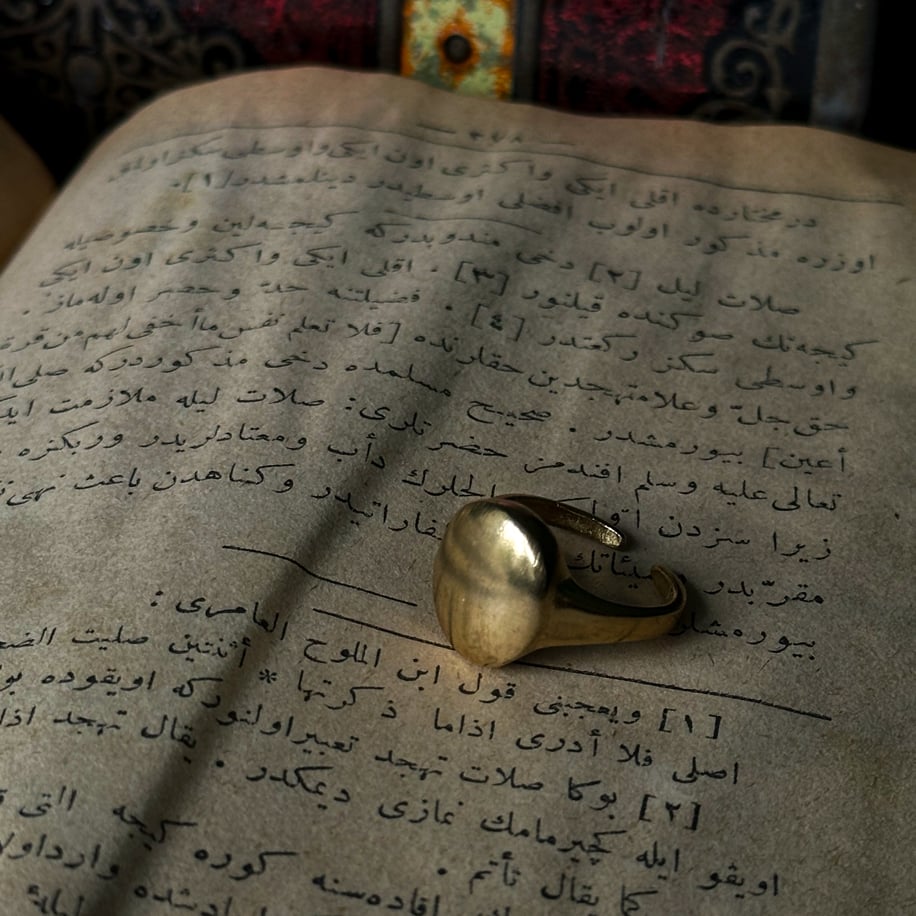 در مختارده اقلی ایکی و اکثری اون ایکی و اوسطی سکز اولمق
اوزره مذکور اولوب افضلی اوسطیدر دینلمشدر [١].
صلات لیل [٢] دخی مندوبدرکه کیجه‌لین وخصوصیله
کیجه‌نك صوکنده قیلنور [٣]. اقلی ایکی و اکثری اون ایکی
واوسطی سکز رکعتدر [٤]. فضیلتنه حدّ و حصر اوله‌ماز.
حق جلّ وعلا متهجدین حقلرنده [فلا تعلم نفس ما أخفی لهم من قرة
أعین] بیورمشدر. صحیح مسلمده دخی مذکوردرکه
تعالی علیه وسلم افندمز حضرتلری: صلات لیله ملازمت
زیرا سزدن دأب ومعتادلریدر وربکزه
مقرّبدر سیئاتك وکناهدن باعث
بیورمشلر
[١] ویعجبنی قول ابن الملوح العامری:
اصلی فلا أدری اذاما ذکرتها * أثنتین صلیت
[٢] بوکا صلات تهجد تعبیر اولنور که اویقوده
اویقو ایله کچیرمامك نمازی دیمکدر. یقال تهجد اذا
کما یقال تأثم.
کوره کیجه التی
افاده‌سنه